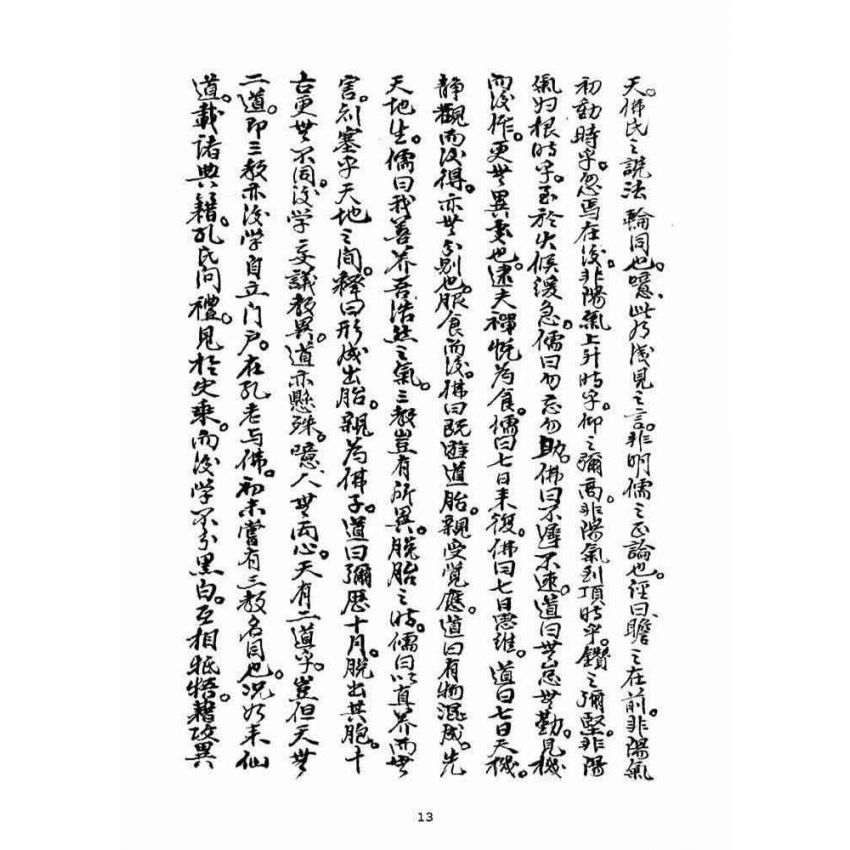 天。佛氏之說法輪同也。噫、此乃淺見之言。非明儒之正論也。經曰。瞻之在前。非陽氣
初動時乎。忽焉在後。非陽氣上升時乎。仰之彌高。非陽氣到頂時乎。鑽之彌堅。非陽
氣歸根時乎。至於火候緩急。儒曰勿忘勿助。佛曰不遲不速。道曰無怠無勤。見機
而後作。更無異也。逮夫禪悅為食。儒曰七日來復。佛曰七日思維。道曰七日天機。
靜觀而後得。亦無分別也。服食而後。佛曰既遊道胎。親受覺應。道曰有物混成。先
天地生。儒曰我善养吾浩然之氣。三教豈有所異。脫胎之時。儒曰以直养而無
害。則塞乎天地之間。釋曰形成出胎。親為佛子。道曰彌歷十月。脫出其胞。千
古更無不同。後学妄議教異。道亦懸殊。噫。人無两心。天有二道乎。豈但天無
二道。即三教亦後学自立门户。在孔老与佛。初未嘗有三教名目也。况乃未仙
道。載諸典籍。孔氏问禮。見於史乘。而後学不分黑白。互相牴牾。藉攻異
13